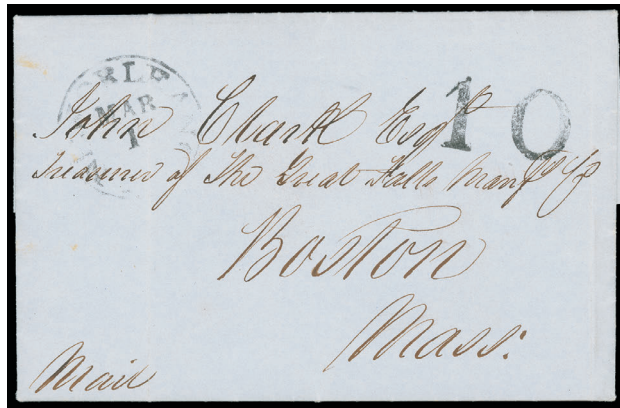 ORLEA
MAR
1
10
John Clark Esqr
Treasurer of The Great Falls Manfg Co
Boston
Mass:
Mail